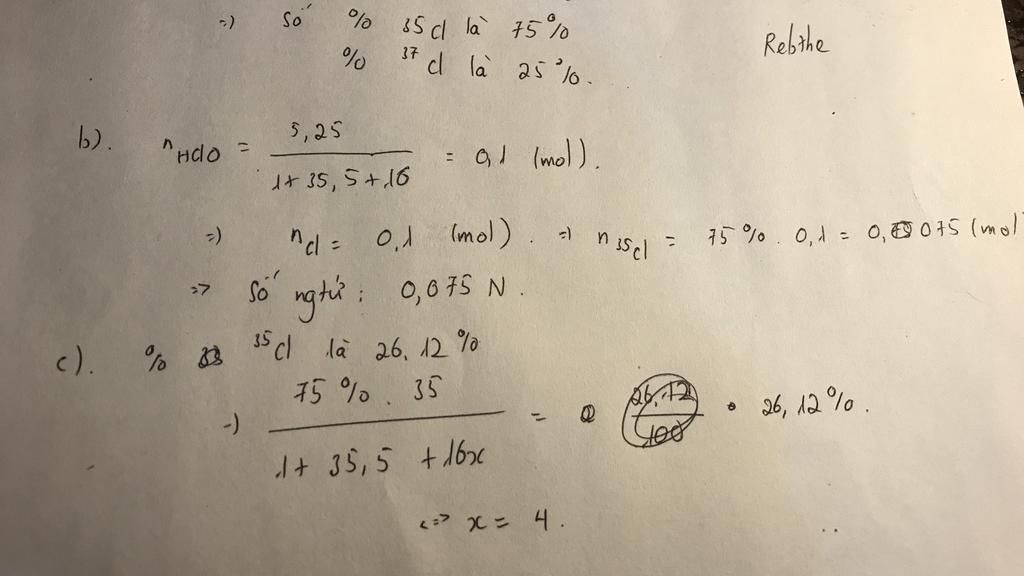 =) Số % 35cl là 75%
Rebthe
% 37 cl là 25%.
b). nHClO = 5,25 / 1+35,5+16 = 0,1 (mol).
=) ncl = 0,1 (mol). =) n35cl = 75%. 0,1 = 0,075 (mol)
=> Số ngtử: 0,075 N.
c). % 35cl là 26,12%
=) 75%. 35 / 1+ 35,5 + 16x = 26,12%.
<=> x = 4.